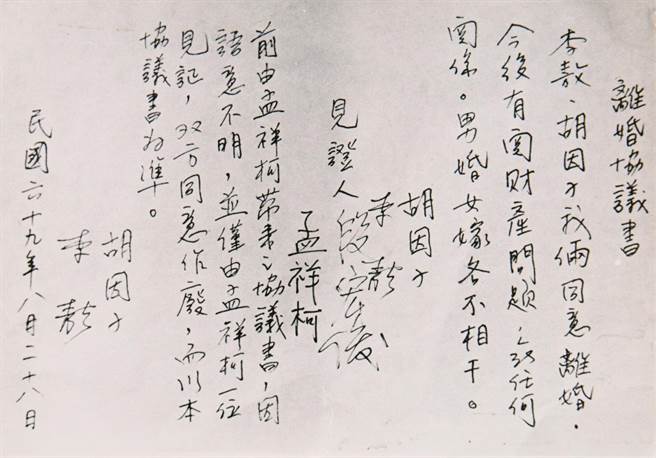 離婚協議書
李敖、胡因子我倆同意離婚。
今後有関财產問題,任何
関係。男婚女嫁各不相干。
胡因子
李敖
見證人段宏俊
孟祥柯
前由孟祥柯帶来之協議書,因
語意不明,並僅由孟祥柯一位
見証,双方同意作廢,而以本
協議書为準。
胡因子
李敖
民國六十九年八月二十八日